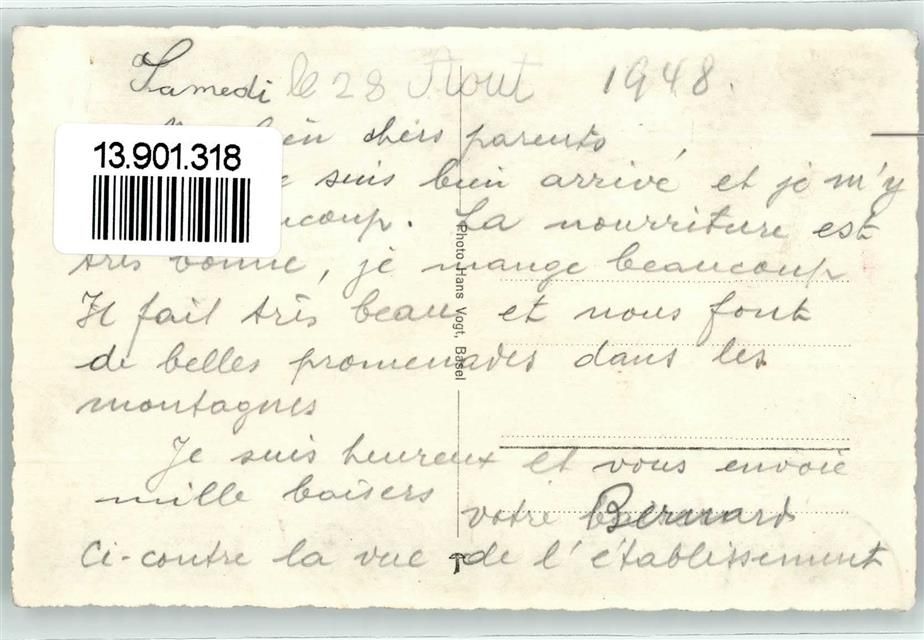 Samedi le 28 Aout 1948.
13.901.318
chers parents
suis bien arrivé et je m'y
ucoup. La nourriture est
très bonne, je mange beaucoup
Il fait très beau et nous font
de belles promenades dans les
montagnes
Je suis heureux et vous envoie
mille baisers
votre Bernard
Ci-contre la vue de l'établissement
Photo Hans Vogt, Basel